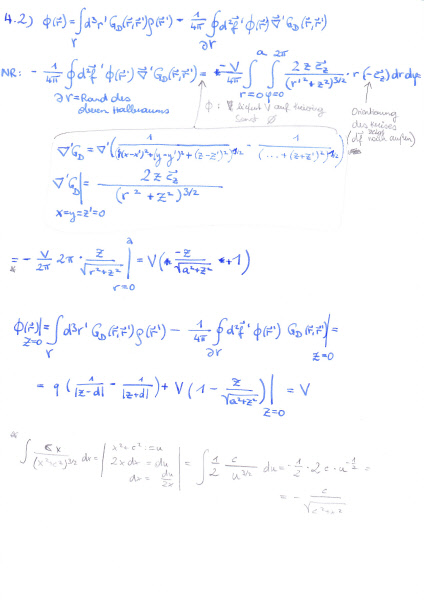 4.2) ϕ(r⃗) = ∫_V d³r' G_D(r⃗,r⃗') ρ(r⃗') - 1/4π ∮_∂V d²f⃗' ϕ(r⃗') ∇⃗' G_D(r⃗,r⃗')
NR: - 1/4π ∮ d²f⃗' ϕ(r⃗') ∇⃗' G_D(r⃗,r⃗') = -V/4π ∫_{r=0}^{a} ∫_{φ=0}^{2π} 2z e⃗_z/(r'²+z²)^{3/2} · r (-e⃗_z) dr dφ =
∂V = Rand des
oberen Halbraums
ϕ: liefert V auf
sonst ∅
Orientierung
des Kreises
(df⃗ nach außen)
∇'G_D = ∇⃗' ( 1/((x-x')²+(y-y')²+(z-z')²)^{1/2} - 1/(...+(z+z')²)^{1/2} )
∇⃗'G_D| = 2z e⃗_z/(r²+z²)^{3/2}
x=y=z'=0
= - V/2π 2π · z/√(r²+z²) |_{r=0}^{a} = V( -z/√(a²+z²) +1)
ϕ(r⃗)|_{z=0} = ∫_V d³r' G_D(r⃗,r⃗') ρ(r⃗') - 1/4π ∮_∂V d²f⃗' ϕ(r⃗') G_D(r⃗,r⃗')|_{z=0} =
= q ( 1/|z-d| - 1/|z+d| ) + V ( 1 - z/√(a²+z²) )|_{z=0} = V
∫ cx/(x²+c²)^{3/2} dx = | x²+c² = u
2x dx = du
dx = du/2x | = ∫ 1/2 c/u^{3/2} du = -1/2 · 2c · u^{-1/2} =
= - c/√(c²+x²)